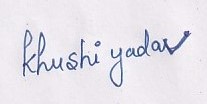 Khushi yadav